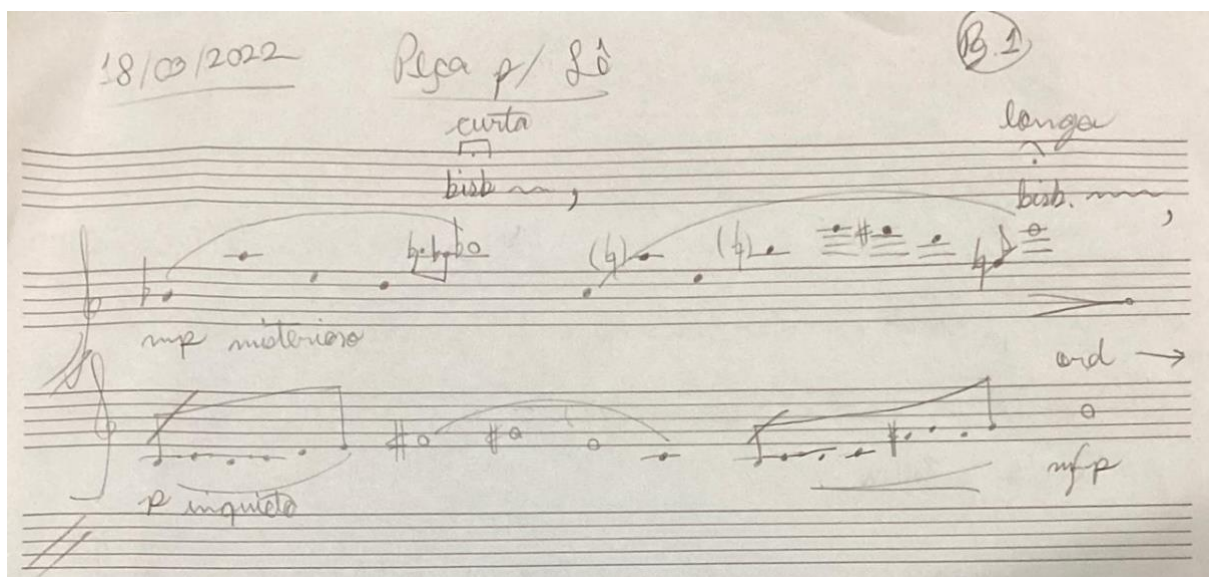 18/03/2022 Peça p/ Lô P.1
curta longa
bisb , bisb. ,
mp misterioso
ord →
p inquieto mfp